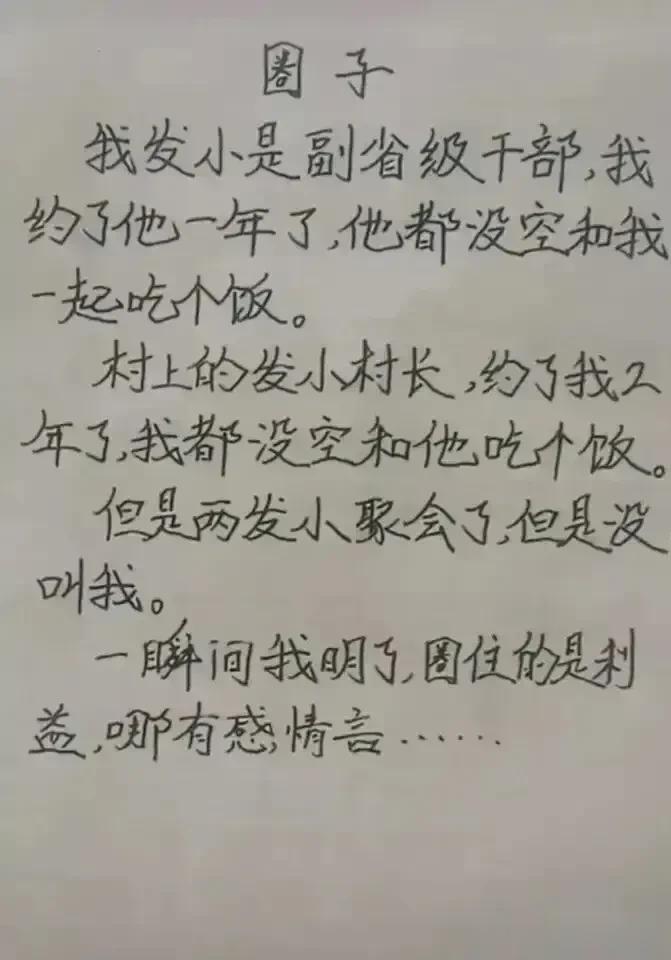 圈子
我发小是副省级干部,我
约了他一年了,他都没空和我
一起吃个饭。
村上的发小村长,约了我2
年了,我都没空和他吃个饭。
但是两发小聚会了,但是没
叫我。
一瞬间我明了,圈住的是利
益,哪有感情言……